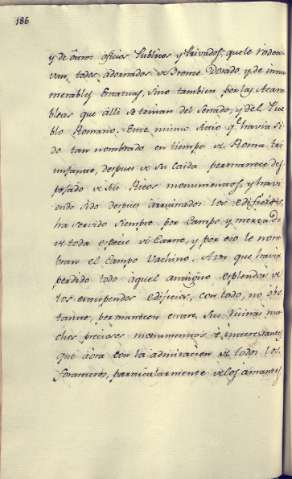 186
y de otros oficios Publicos y Privados, que lo rodea-
van, todos adornados de Bronce Dorado, y de innu-
merables Estatuas, sino tambien por las Asam-
bleas que alli se tenian del Senado, y del Pue-
blo Romano. Este mismo sitio q.e havia si-
do tan nombrado en tiempo de Roma tri-
unfante, despues de su caida permanece des-
pojado de sus Ricos monumentos, y havi-
endo sido despues arruinados los edificios,
ha servido siempre por Campo, y mercado
de toda especie de Carne, y por eso le nom-
bran el Campo Vachino. Aun que havia
perdido todo aquel antiguo esplendor de
los estupendos edificios, con todo, no obs-
tante, permanecen entre sus Ruinas mu-
chos preciosos monumentos è interesantes
que àora con la admiracion de todos los
forasteros, particularmente de los amantes